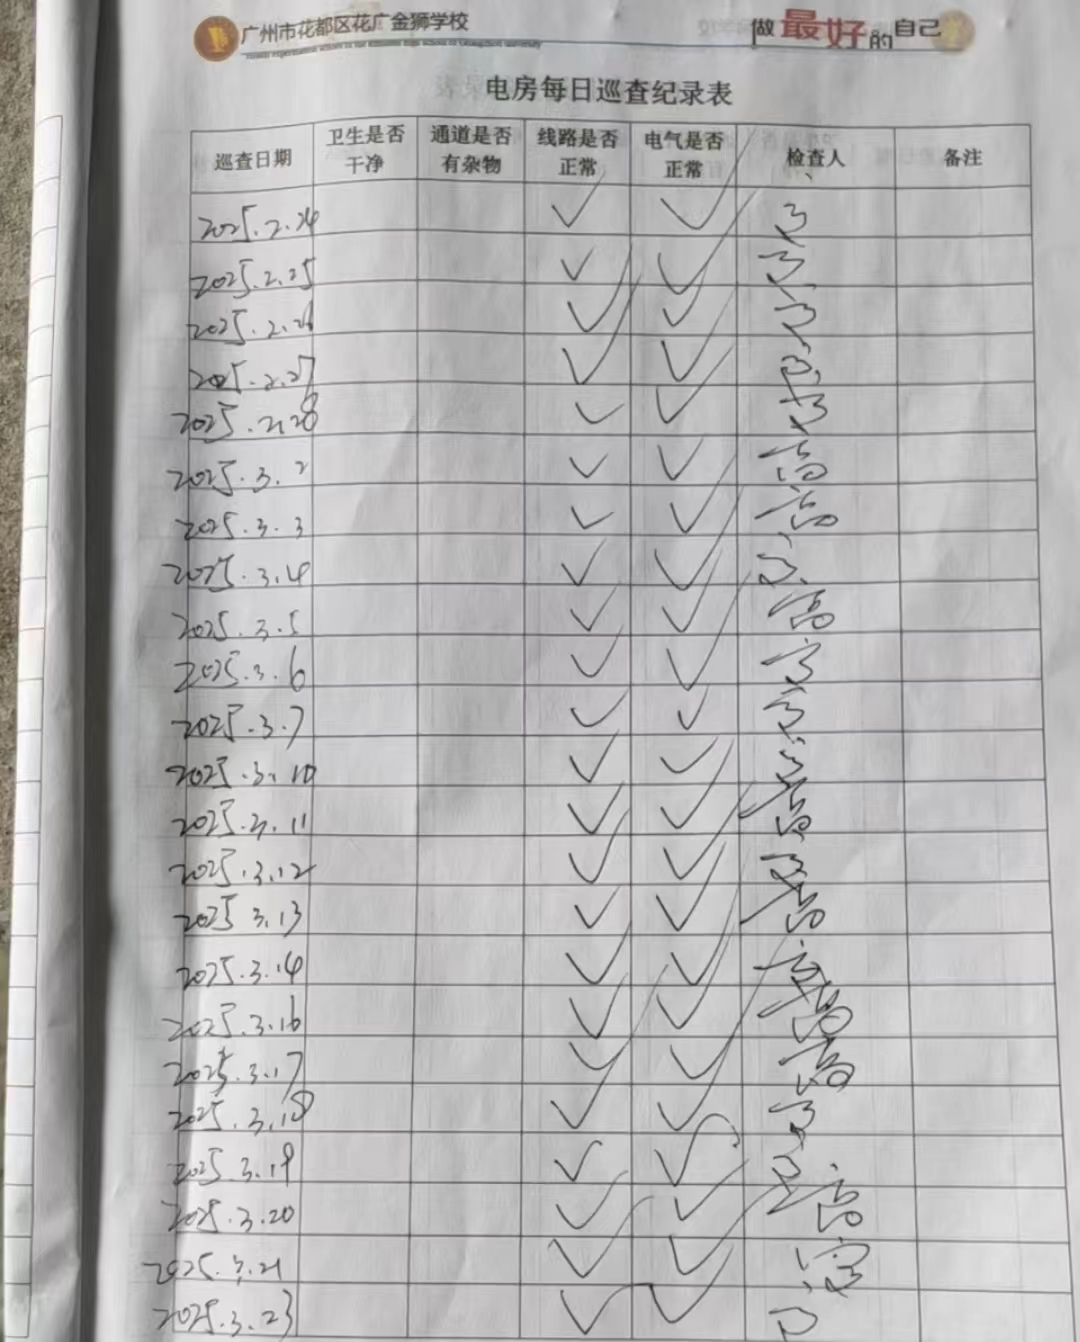 广州市花都区花广金狮学校
做最好的自己
电房每日巡查纪录表
巡查日期 卫生是否干净 通道是否有杂物 线路是否正常 电气是否正常 检查人 备注
2025.2.24 ✓ ✓
2025.2.25 ✓ ✓
2025.2.26 ✓ ✓
2025.2.27 ✓ ✓
2025.2.28 ✓ ✓
2025.3.2 ✓ ✓
2025.3.3 ✓ ✓
2025.3.4 ✓ ✓
2025.3.5 ✓ ✓
2025.3.6 ✓ ✓
2025.3.7 ✓ ✓
2025.3.10 ✓ ✓
2025.3.11 ✓ ✓
2025.3.12 ✓ ✓
2025.3.13 ✓ ✓
2025.3.14 ✓ ✓
2025.3.16 ✓ ✓
2025.3.17 ✓ ✓
2025.3.18 ✓ ✓
2025.3.19 ✓ ✓
2025.3.20 ✓ ✓
2025.3.21 ✓ ✓
2025.3.23 ✓ ✓